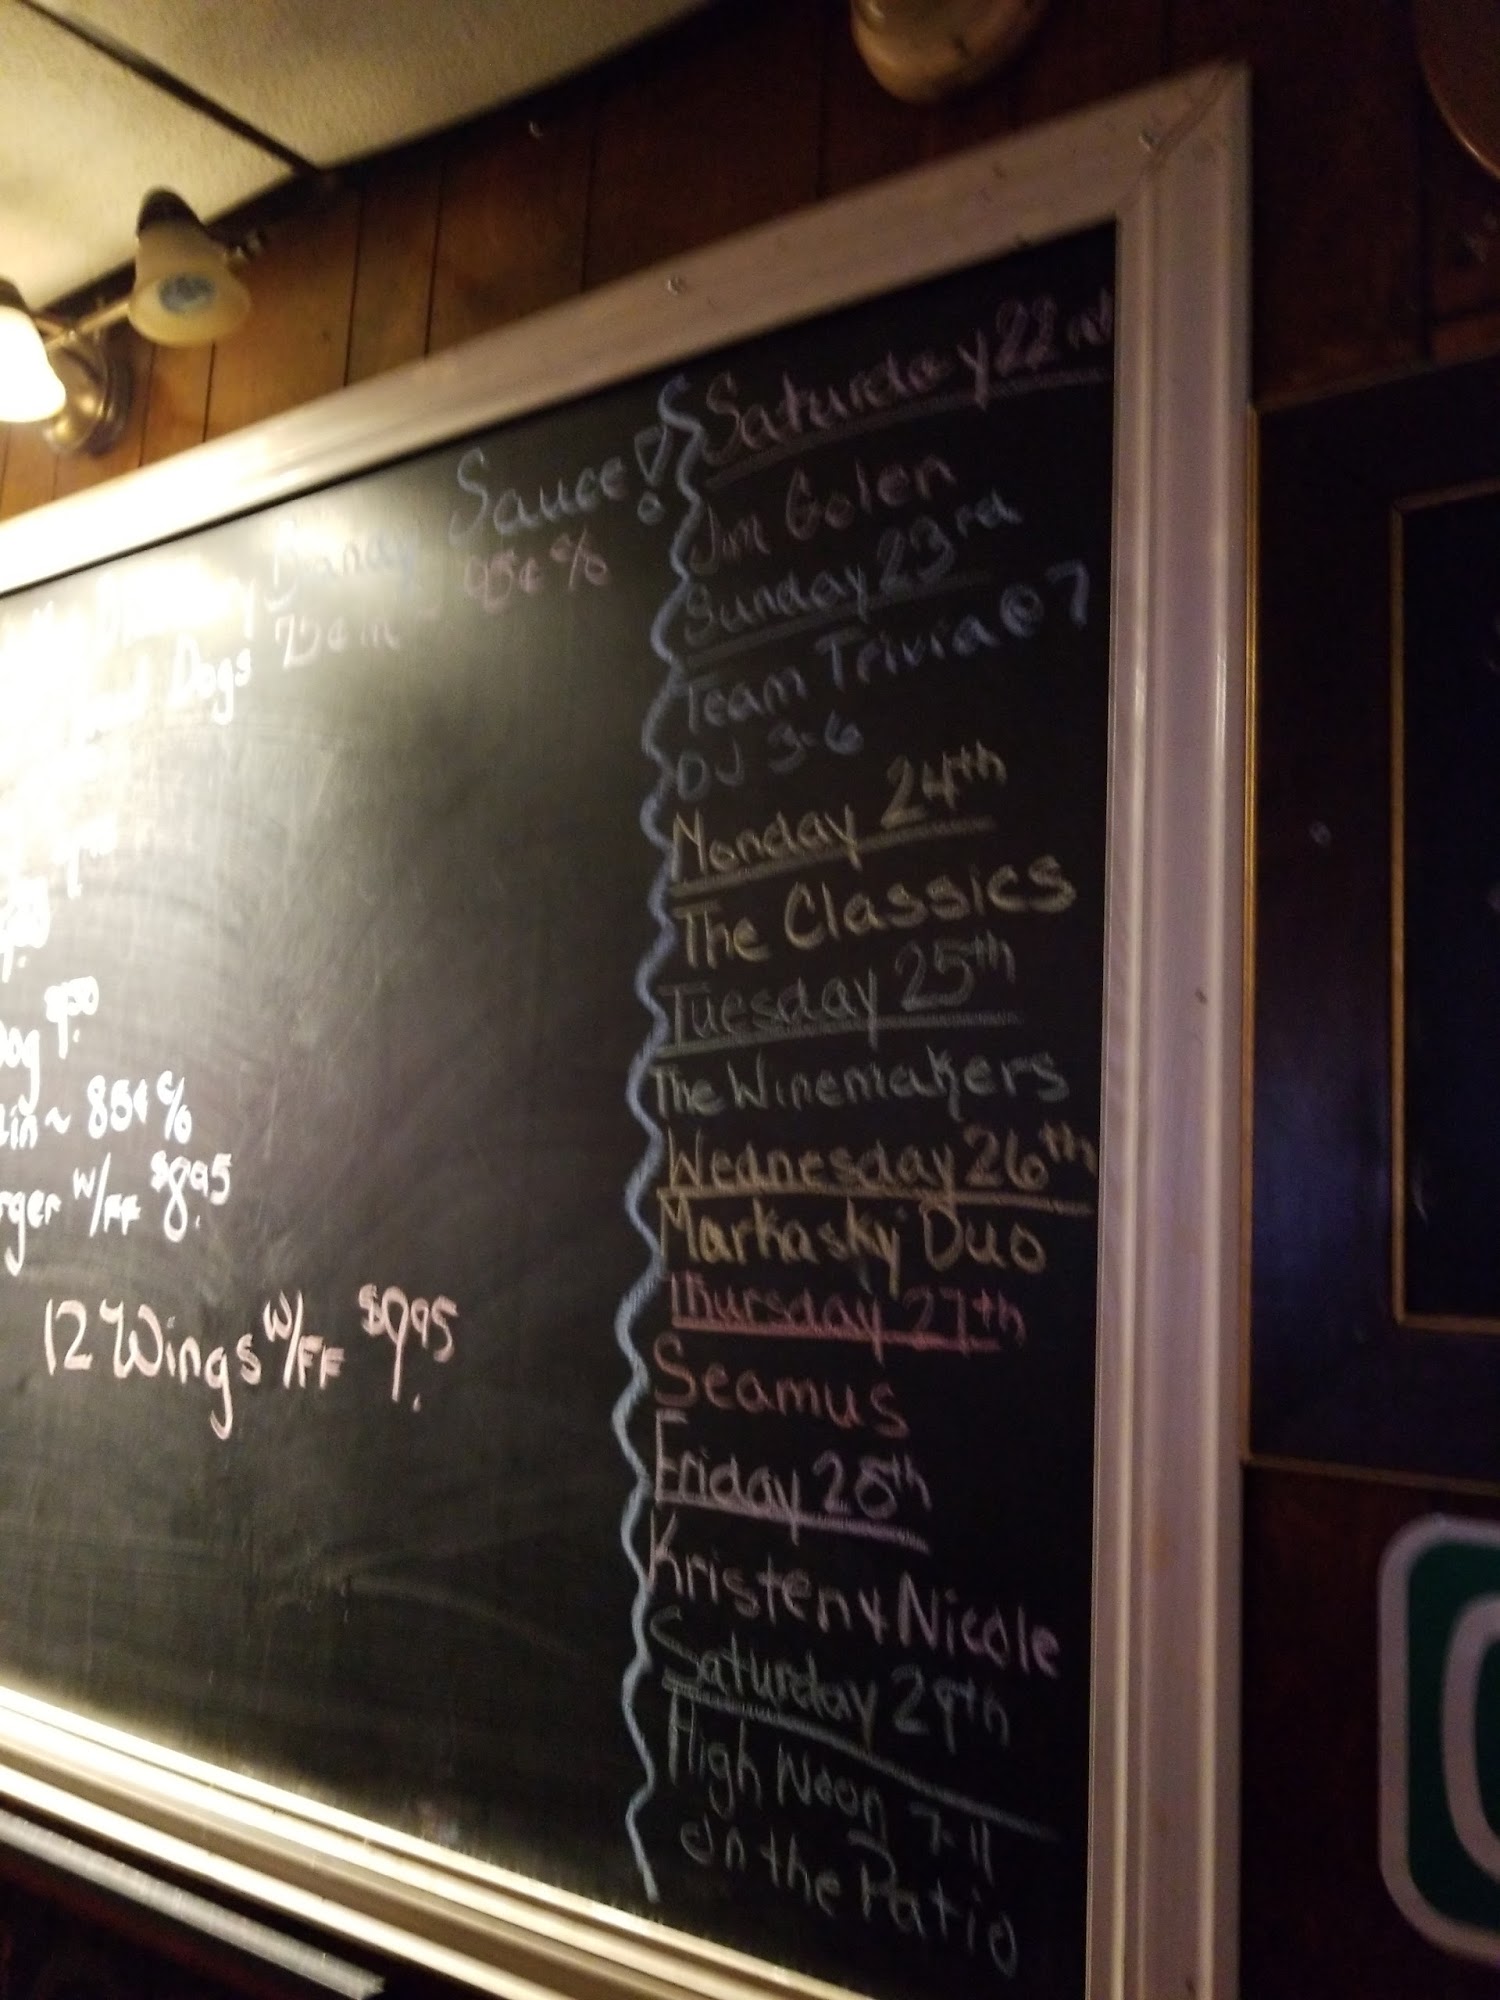 Sauce!
Dogs 75¢ in 95¢ c/o
Dog
~ 85¢ c/o
w/FF $8.95
12 Wings w/FF $9.95
Saturday 22nd
Jim Golen
Sunday 23rd
Team Trivia @ 7
DJ 3-6
Monday 24th
The Classics
Tuesday 25th
The Winemakers
Wednesday 26th
Markasky Duo
Thursday 27th
Seamus
Friday 28th
Kristen & Nicole
Saturday 29th
High Noon 7-11
on the Patio